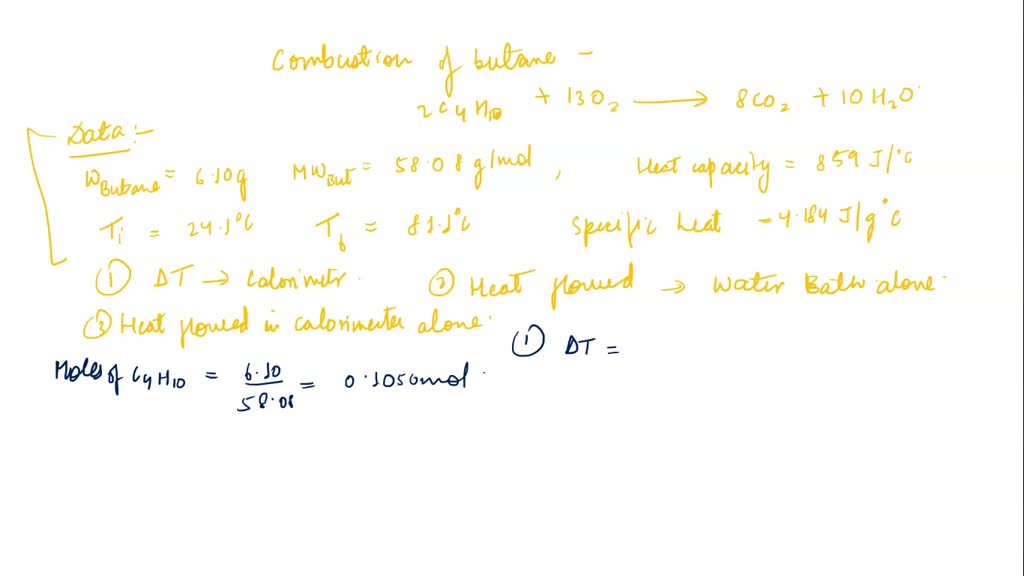 Combustion of butane -
2C4H10 + 13O2 → 8CO2 + 10H2O.
Data :-
WButane = 6.10g MWBut = 58.08 g/mol , Heat capacity = 859 J/°C
Ti = 24.1°C Tf = 81.1°C Specific heat - 4.184 J/g°C
① ΔT → Calorimeter. ② Heat flowed → Water Bath alone.
③ Heat flowed in calorimeter alone.
① ΔT =
Moles of C4H10 = 6.10/58.08 = 0.1050 mol.